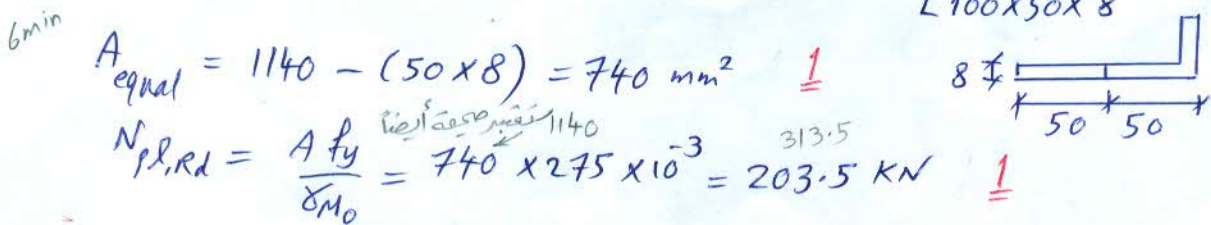 6min
L 100x50x8
A equal = 1140 - (50x8) = 740 mm² 1
8
50 50
1140 تعتبر صحيحة أيضاً
313.5
N pl,Rd = A fy / γM0 = 740 x 275 x 10⁻³ = 203.5 KN 1